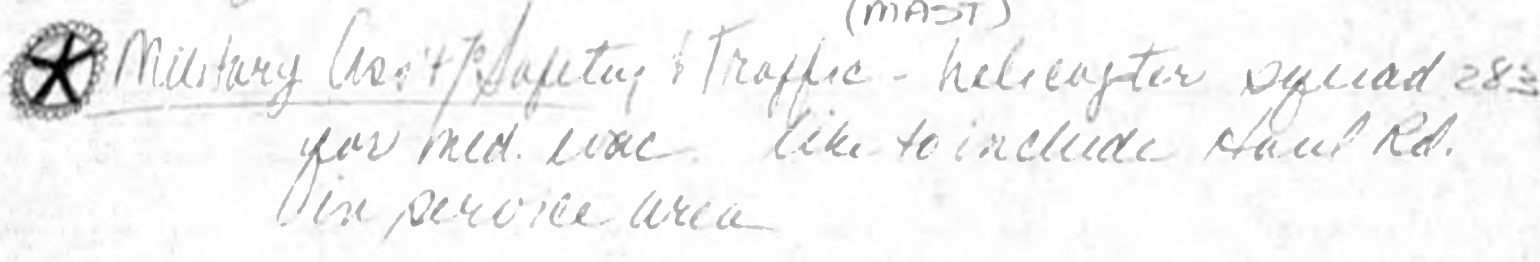 (MAST)
Military Asst Safety & Traffic - helicopter squad 283
for med. evac like to include Haul Rd.
in service area